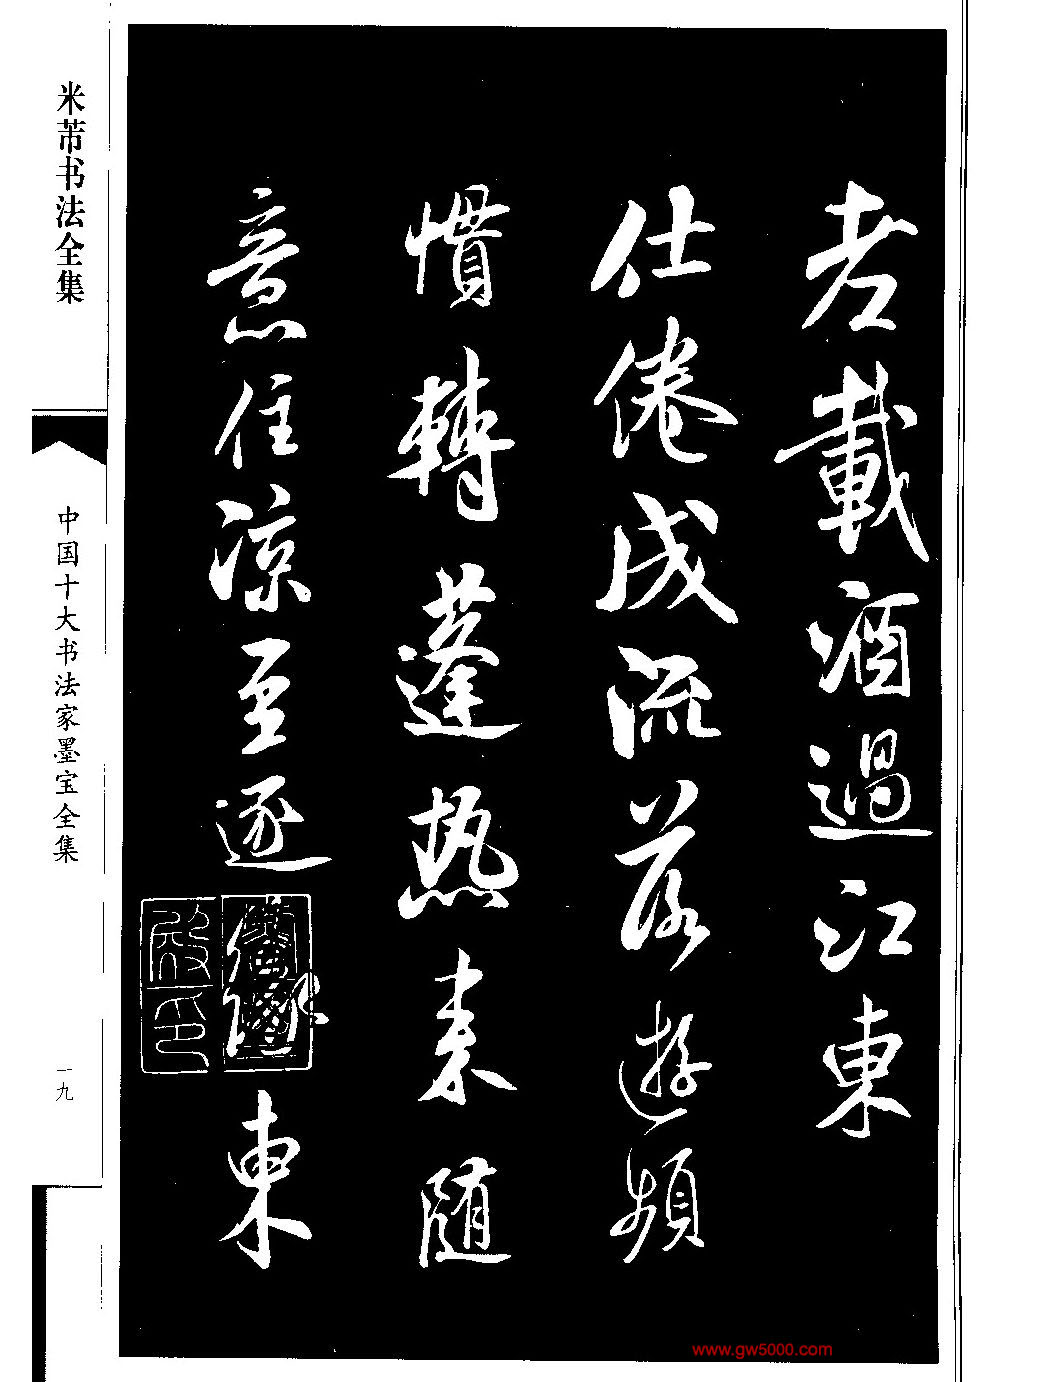 老載酒過江東
仕倦成流落遊頻
慣轉蓬热来随
意住涼至逐東
米芾书法全集
中国十大书法家墨宝全集
一九
www.gw5000.com